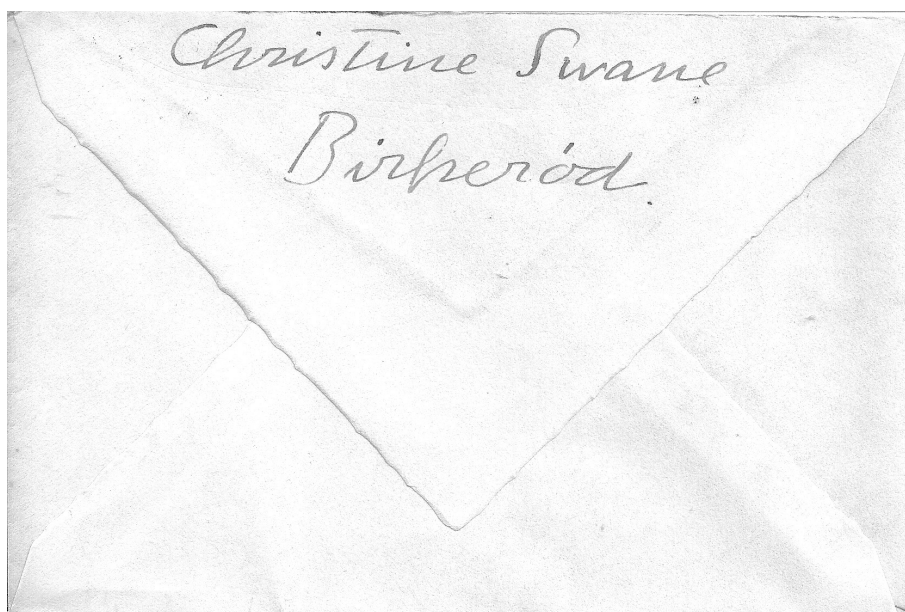 Christine Swane
Birkeród.